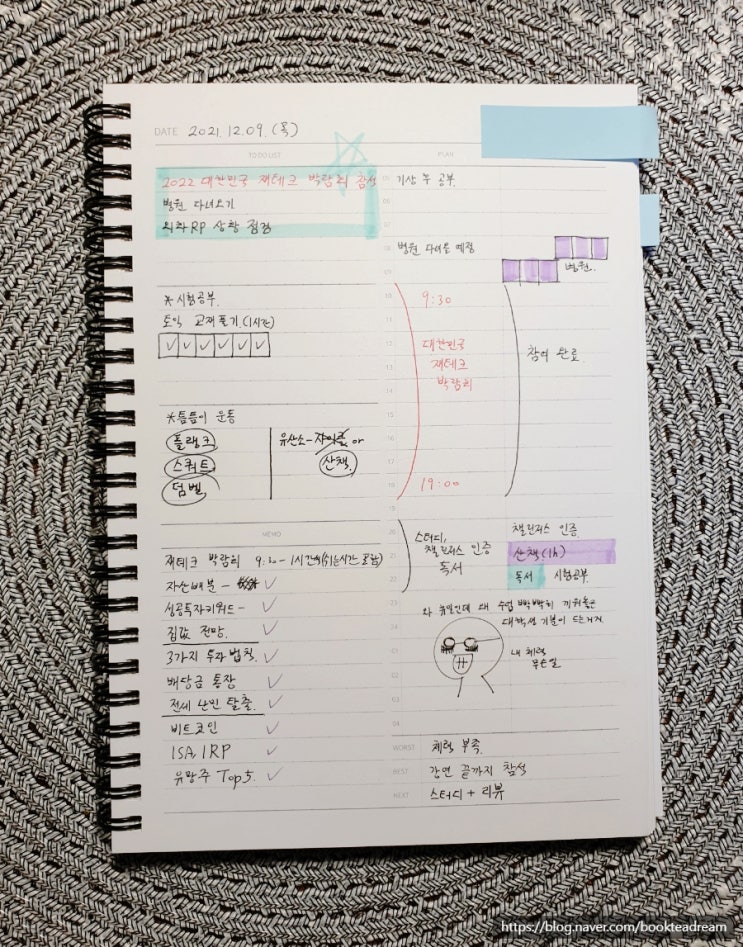 DATE 2021.12.09.(목)
TO DO LIST
2022 대한민국 재테크 박람회 참석
병원 다녀오기
외화RP 상황 점검
※ 시험공부
토익 교재풀기.(1시간)
※틈틈이 운동
플랭크
스쿼트
덤벨
유산소- or
산책
MEMO
재테크 박람회 9:30- 1시간씩(쉬는시간 포함)
자산배분 - ✓
성공투자키워드 - ✓
집값 전망. ✓
3가지 투자법칙. ✓
배당금 통장 ✓
전세 난민 탈출. ✓
비트코인 ✓
ISA, IRP ✓
유망주 Top5. ✓
PLAN
05 기상 후 공부.
06
07
08 병원 다녀올 예정
09
병원.
10 9:30
11
12 대한민국
재테크
박람회
참여 완료
15
16
17
18 19:00
19
20 스터디,
21 챌린저스 인증
22 독서
챌린저스 인증
산책(1h)
독서 시험공부.
23 와 휴일인데 왜 수업 빡빡히 끼워놓은
대학생 기분이 드는거지
내 체력
무슨일
WORST 체력 부족.
BEST 강연 끝까지 참석
NEXT 스터디 + 리뷰
https://blog.naver.com/bookteadream